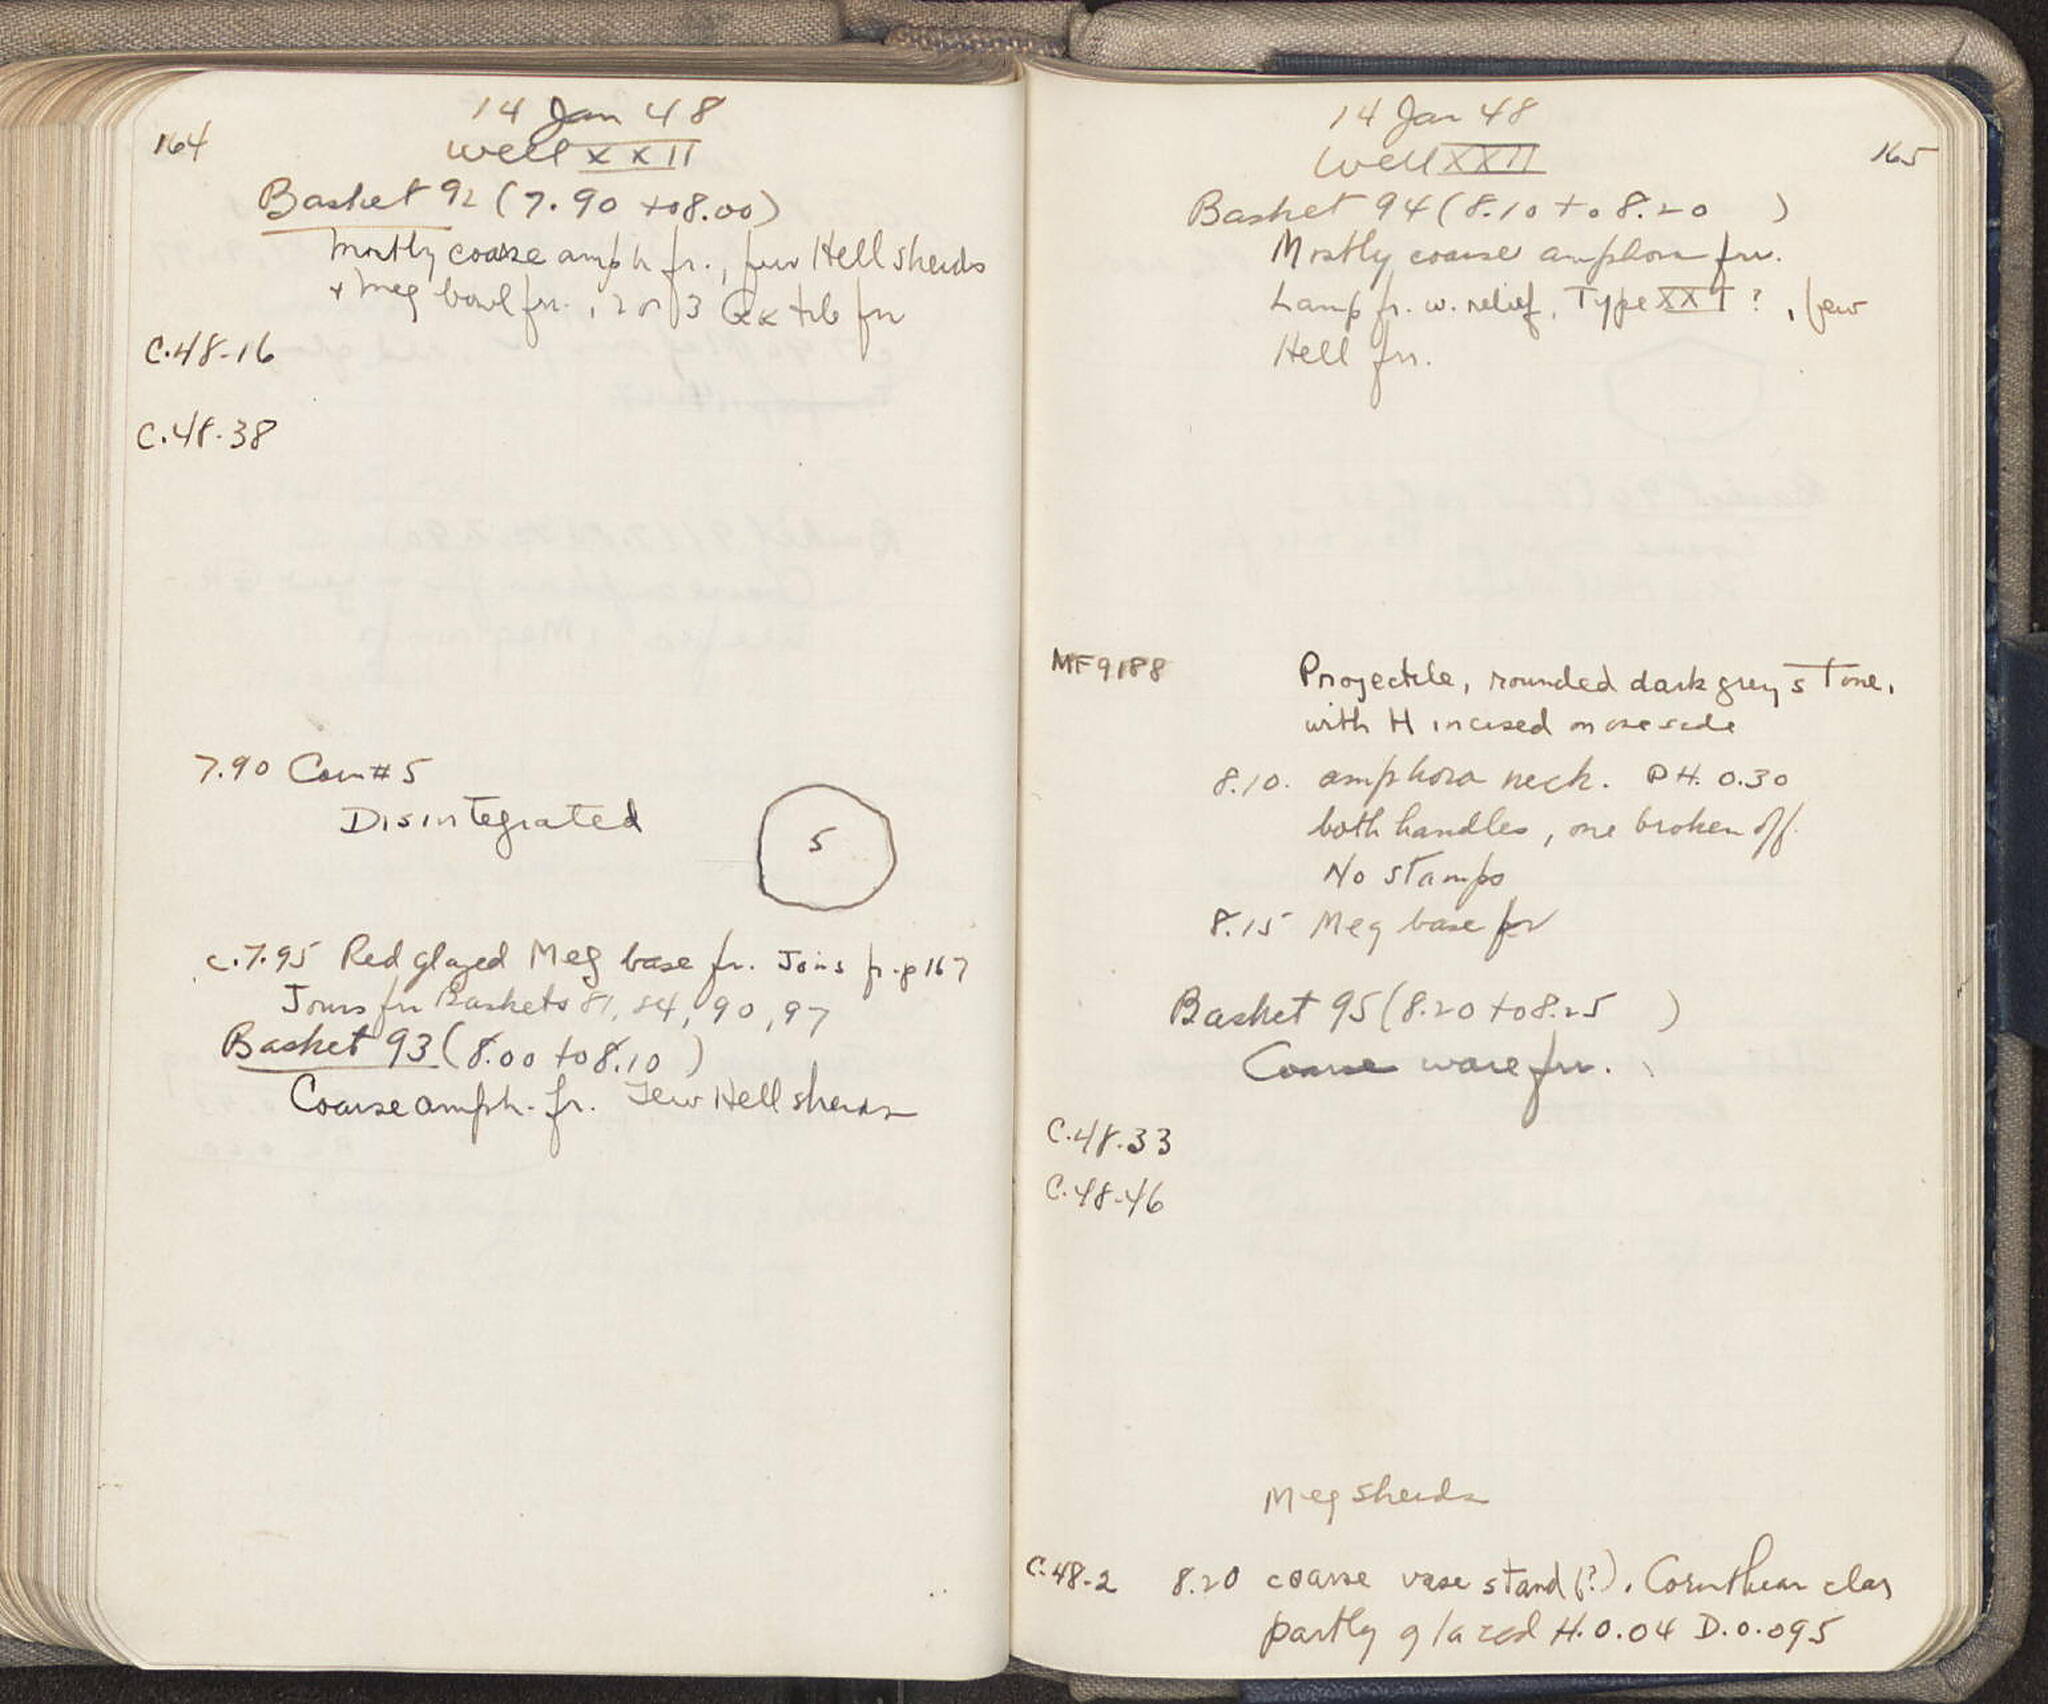 164
14 Jan 48
Well XXII
Basket 92 (7.90 to 8.00)
Mostly coarse amph fr., few Hell sherds
+ Meg bowl frr., 2 or 3 tile frr
C.48-16
C.48-38
7.90 Coin #5
Disintegrated
5
c.7.95 Red glazed Meg base fr. Joins fr. p 167
Joins frr Baskets 81, 84, 90, 97
Basket 93 (8.00 to 8.10)
Coarse amph. fr. Few Hell sherds
14 Jan 48
Well XXII
165
Basket 94 (8.10 to 8.20 )
Mostly coarse amphora frr.
Lamp fr. w. relief, Type XXI?, few
Hell frr.
MF 9188 Projectile, rounded dark grey stone,
with H incised on one side
8.10. amphora neck. PH. 0.30
both handles, one broken off.
No stamps
8.15 Meg base fr
Basket 95 (8.20 to 8.25 )
Coarse ware frr.
C.48-33
C.48-46
Meg sherds
C.48-2 8.20 coarse vase stand (?). Corinthian clay
partly glazed H. 0.04 D. 0.095